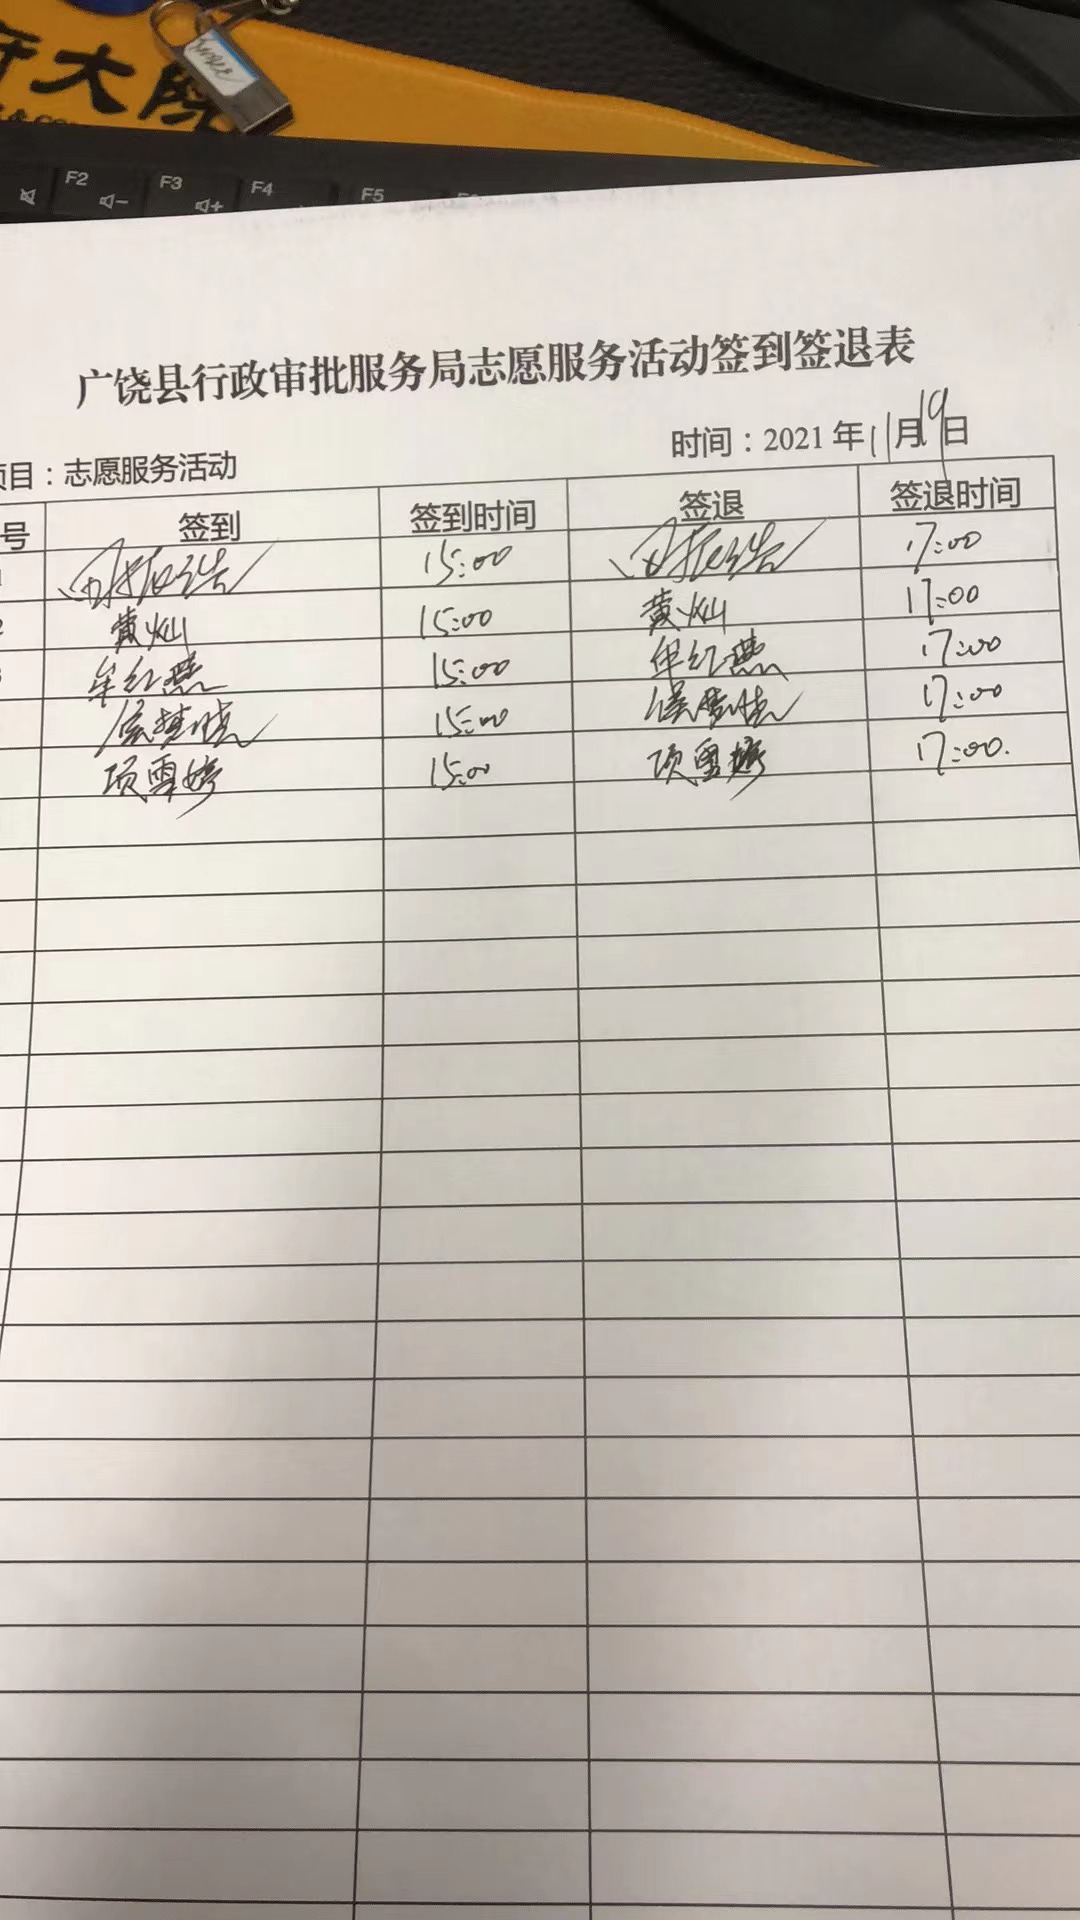 大院
F2
F3
F4
F5
广饶县行政审批服务局志愿服务活动签到签退表
时间：2021年11月19日
项目：志愿服务活动
号 签到 签到时间 签退 签退时间
15:00 17:00
2 黄灿 15:00 黄灿 17:00
牟红燕 15:00 牟红燕 17:00
侯梦晓 15:00 侯梦晓 17:00
项雪婷 15:00 项雪婷 17:00.